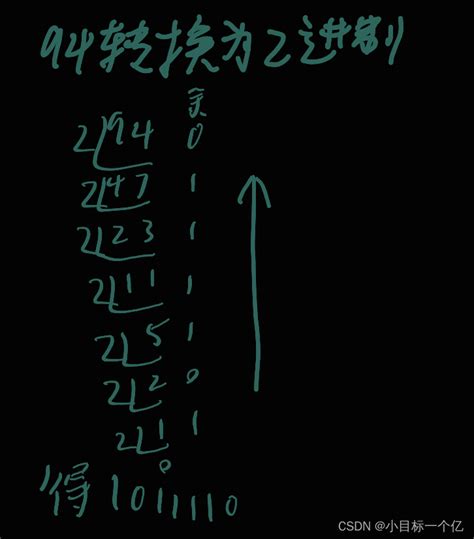 94转换为2进制
余
2 94 0
2 47 1
2 23 1
2 11 1
2 5 1
2 2 0
2 1 1
0
得 1011110
CSDN @小目标一个亿